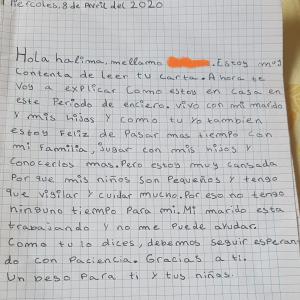 Miércoles, 8 de Avril del 2020
Hola halima, me llamo . Estoy muy
Contenta de leer tu carta. Ahora te
voy a explicar Como estoy en casa en
este Periodo de enciero. vivo con mi marido
y mis hijos y como tu yo tambien
estoy Feliz de Pasar mas tiempo con
mi familia, Jugar con mis hijos y
Conocerlos mas. Pero estoy muy cansada
Por que mis niños son Pequeños y tengo
que vigilar y cuidar mucho. Por eso no tengo
ninguno tiempo Para mi. Mi marido esta
trabajando y no me Puede ayudar.
Como tu lo dices, debemos seguir esperan
do con Paciencia. Gracias a ti.
Un beso Para ti y tus niños.